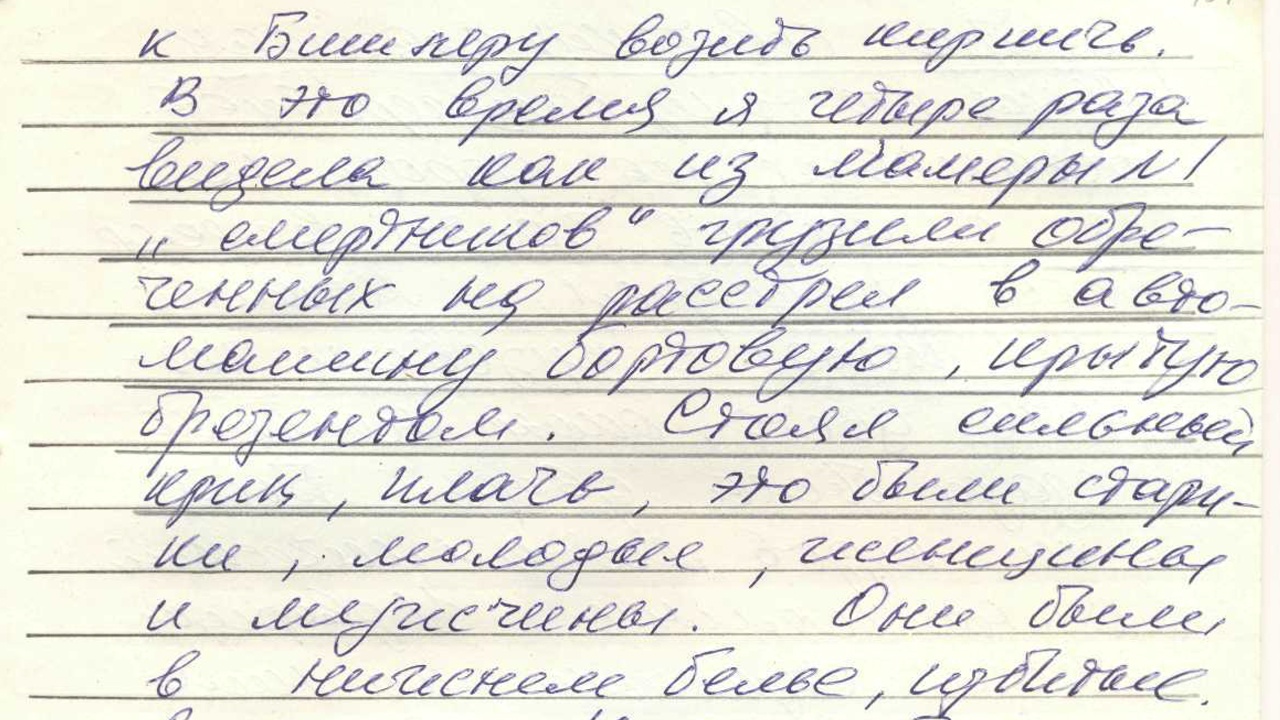 к Биш керу возить кирпичь.
В это время я четыре раза
видела как из камеры N 1
„смертников“ грузили обре-
ченных на расстрел в авто-
машину бортовую, крытую
брезентом. Стоял сильный
крик, плачь, это были стари-
ки, молодые, женщины
и мужсчины. Они были
в нижнем белье, избитые.